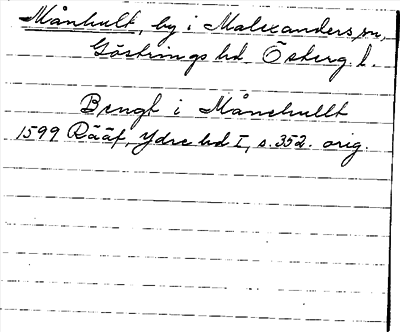 Månhult, by i Malexanders sn,
Göstrings hd, Österg. l.
Bengt i Månehullt
1599 Rääf, Ydre hd I, s. 352. orig.